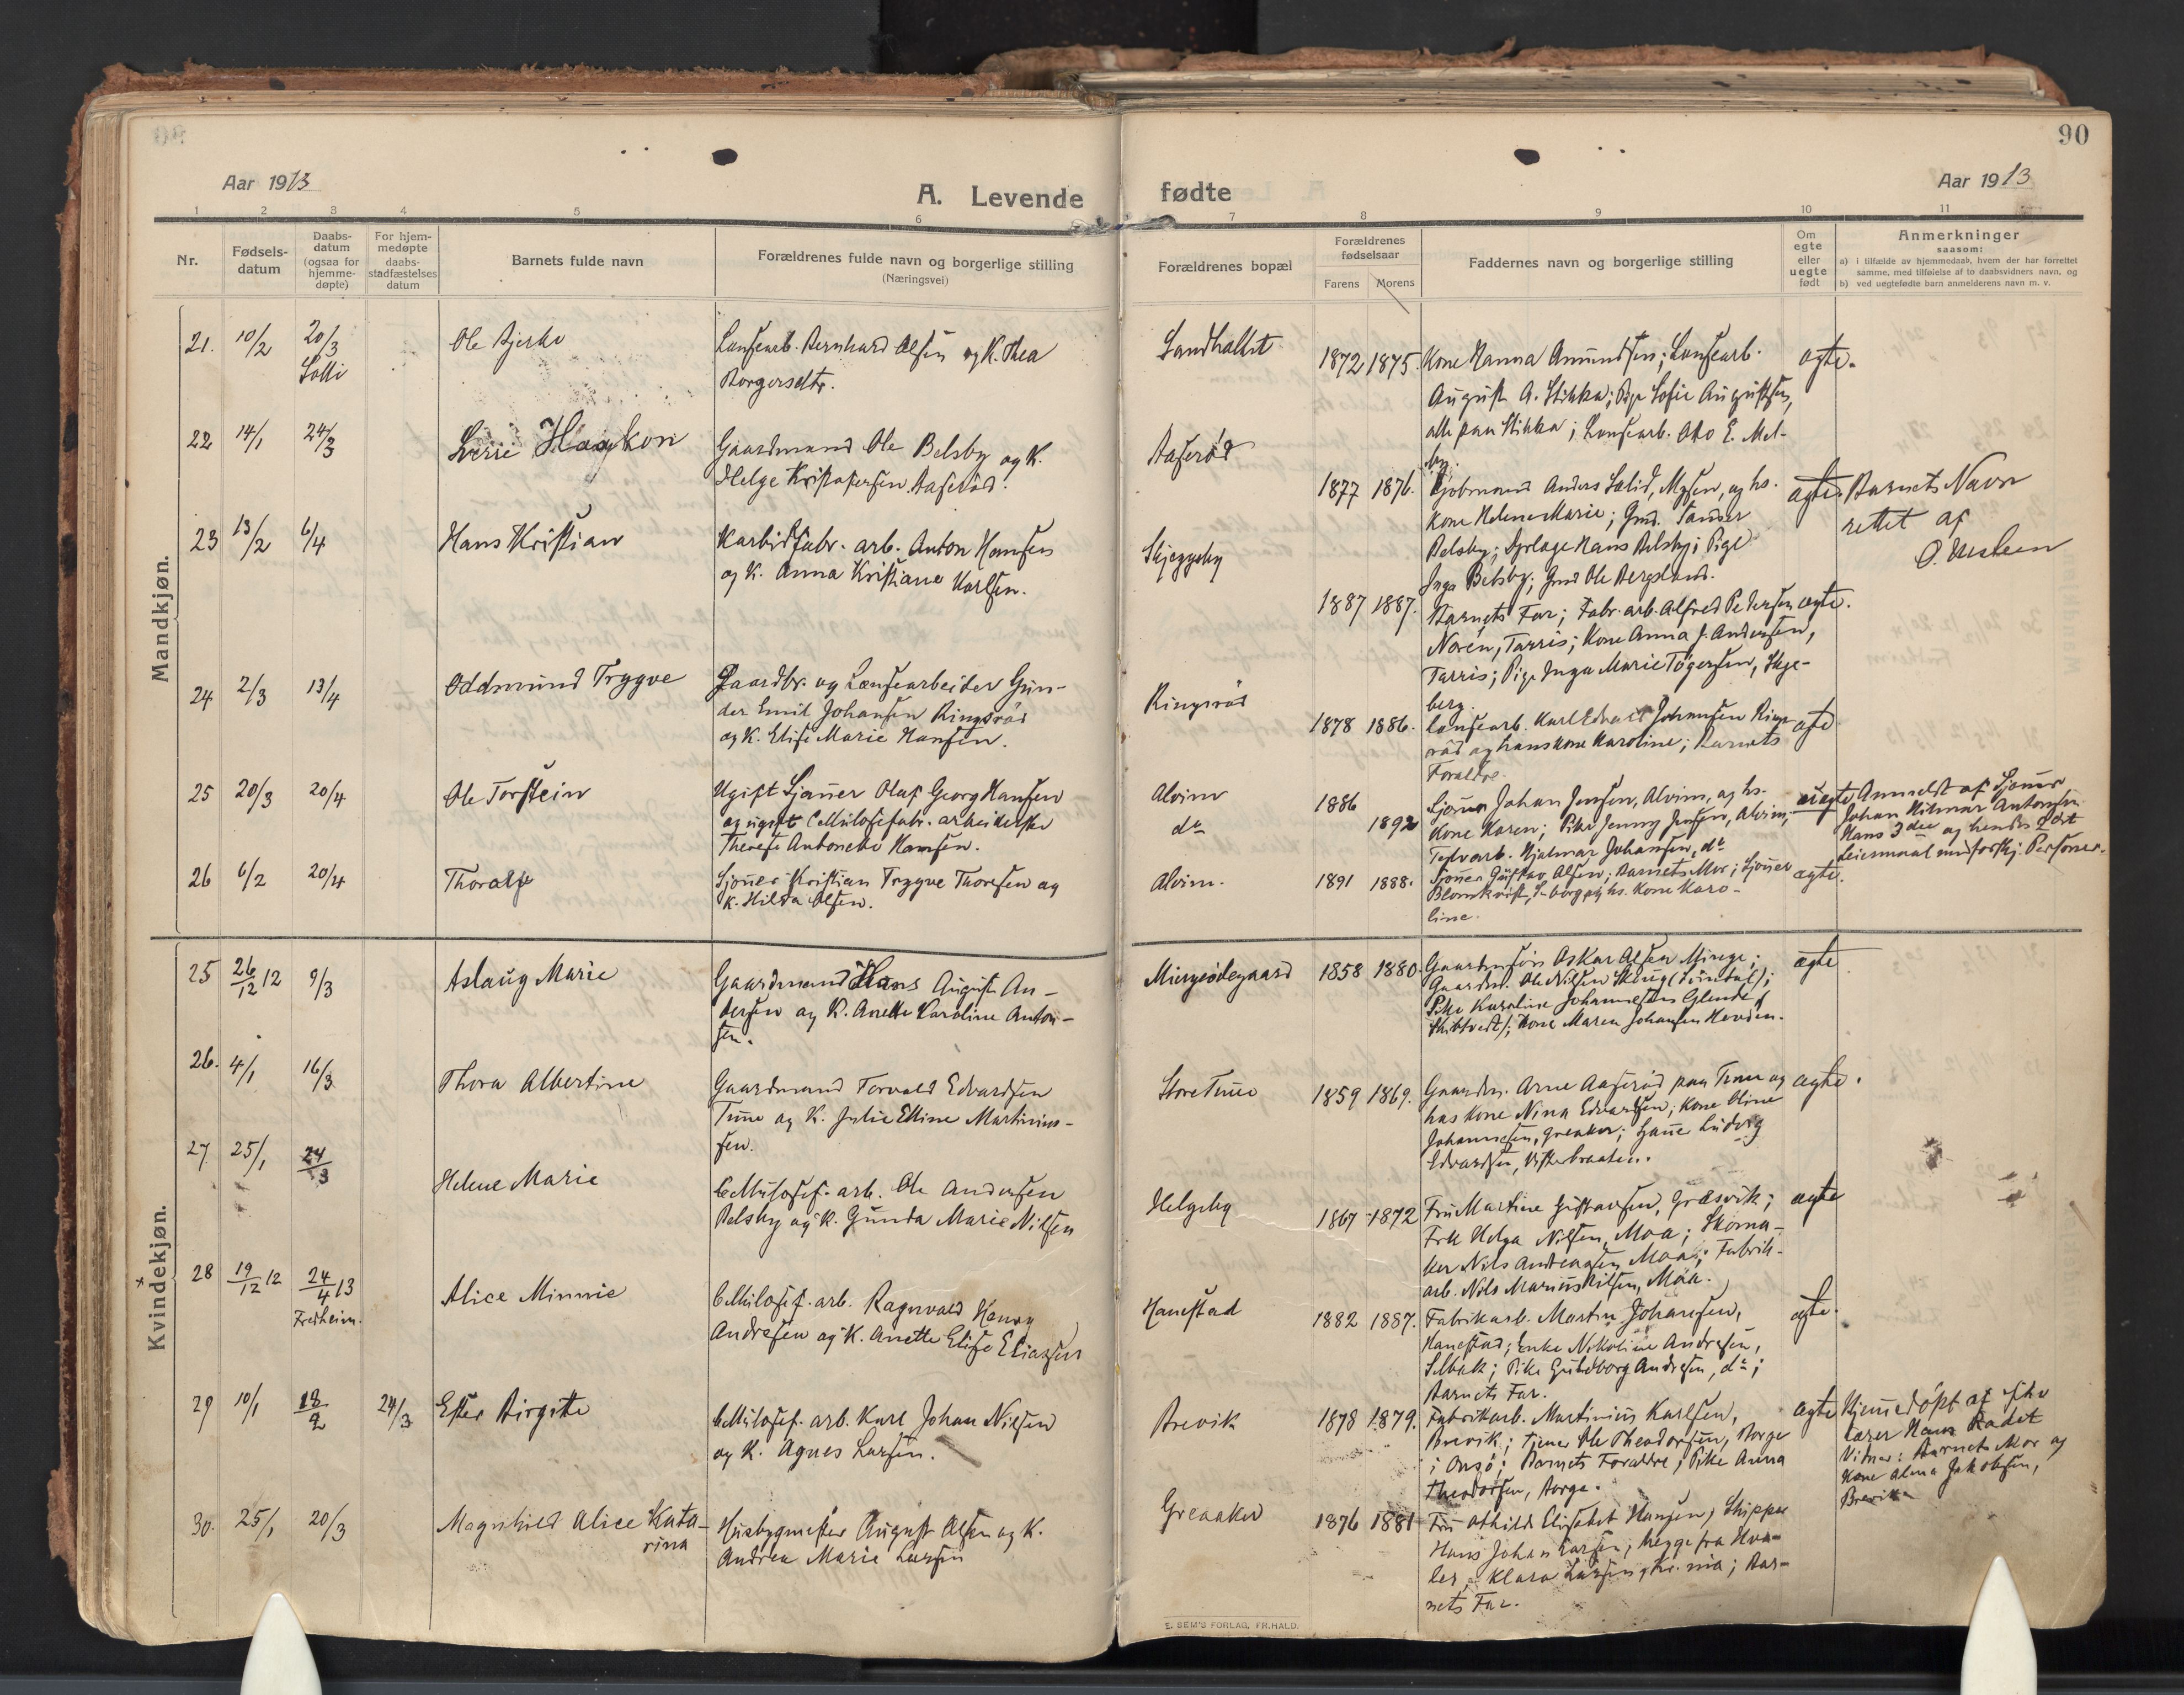 90
Aar 1913
A. Levende
fødte
Aar 1913
1 2 3 4 5 6 7 8 9 10 11
Nr.
Fødsels-
datum
Daabs-
datum
(ogsaa for
hjemme-
døpte)
For hjem-
medøpte
daabs-
stadfæstelses
datum
Barnets fulde navn
Forældrenes fulde navn og borgerlige stilling
(Næringsvei)
Forældrenes bopæl
Forældrenes
fødselsaar
Farens Morens
Faddernes navn og borgerlige stilling
Om
egte
eller
uegte
født
Anmerkninger
saasom:
a) i tilfælde av hjemmedaab, hvem der har forrettet
samme, med tilføielse af to daabsvidners navn, og
b) ved uegtefødte barn anmelderens navn m. v.
Mandkjøn.
21. 10/2 20/3 Ole Bjerke
Lensearb. Bernhard Olsen og K. Thea
Borgersdtr.
Sandbakket 1872 1875.
Kone Hanna Amundsen; Lensearb.
August A. Stikka; Pige Sofie Augustsen,
alle paa Stikka; Lensearb. Otto E. Mel-
by.
ægte.
22 14/1 24/3 Sverre Haakon
Gaardmand Ole Belsby og K.
Helge Kristofersen Aaserød.
Aaserød 1877 1876.
Kjøbmand Anders Solid, Mysen, og hs.
Kone Helene Marie; Gmd.
Belsby; Hans Belsby; Pige
Inga Belsby; Gmd Ole Bergsland.
ægte. Barnets Navn
rettet af
23 13/2 6/4 Hans Kristian
Karbidfabr. arb. Anton Hansen
og K. Anna Kristiane Karlsen.
Skjeggeby 1887 1887.
Barnets Far; Fabr. arb. Alfred Pedersen
Norén, Tarris; Kone Anna J. Andersen,
Tarris; Pige Inga Marie Tögersen, Skje-
berg.
ægte.
24 2/3 13/4 Oddmund Trygve
Gaardbr. og Lensearbeider Gun-
der Emil Johansen Ringsrød
og K. Elise Marie Hansen.
Ringsrød 1878 1886.
Lensearb. Karl Edvard Johansen Rings-
rød og hans kone Karoline; Barnets
Forældre.
ægte
25 20/3 20/4 Ole Torstein
Ugift Sjømer Olaf Georg Hansen
og ugift Cellulosefabr. arbeiderske
Therese Antonette Hansen.
Alvim
do
1886
1892
Johan Jensen, Alvim, og hs.
Kone Karen; Pike Jenny Jensen, Alvim;
Hjalmar Johansen, do
uægte Anmeldt af
Johan Hilmar Antonsen.
Hans 3die og hendes 2det
Leiermaal med forskj. Personer.
26 6/2 20/4 Thoralf
Kristian Trygve Thoresen og
K. Hilda Olsen.
Alvim. 1891 1888.
Gustav Olsen; Barnets Mor;
Blomkvist, S-borg og hs. Kone Karo-
line.
ægte.
Kvindekjøn.
25 26/12 12 9/3 Aslaug Marie
Gaardmand Hans August An-
dersen og K. Anette Karoline Anton-
sen.
Mingeødegaard 1858 1880.
Oskar Olsen Minge;
Gaardm. Ole Nilsen Skaug;
Pike Karoline Johannessen Glende
Skibtvedt; Kone Maren Johansen Hevden.
ægte
26. 4/1 16/3 Thora Albertine
Gaardmand Torvald Edvardsen
Tune og K. Julie Elline Martinius-
sen.
Store Tune 1859 1869.
Gaardm. Arne Aaserød paa Tune og
hs Kone Nina Edvardsen; Kone Oline
Johannesen, Greaker; Ludvig
Edvardsen,
ægte.
27. 25/1 24/3 Helene Marie
Cellulosef. arb. Ole Andersen
Belsby og K. Gunda Marie Nilsen
Helgeby 1867 1872
Fru Martine Gustavsen, Græsvik;
Frk Helga Nilsen, Moa; Skoma-
ker Nils Andreasen, Moa; Fabrik-
arb. Nils Marius Nilsen, Moa.
ægte
28 19/12 12 24/4 13
Fredheim.
Alice Minnie
Cellulosef. arb. Ragnvald Henry
Andresen og K. Anette Elise Eliassen
Hanestad 1882 1887.
Fabrikarb. Martin Johansen,
Hanestad; Enke Nikoline Andresen,
Selbak; Pike Guldborg Andresen, do;
Barnets Far.
ægte.
29 10/1 18/2 24/3 Ester Birgitte
Cellulosef. arb. Karl Johan Nilsen
og K. Agnes Larsen.
Brevik 1878 1879.
Fabrikarb. Martinius Karlsen,
Brevik; Tjener Ole Theodorsen, Borge
i Onsø; Barnets Forældre; Pike Anna
Theodorsen, Borge.
ægte Hjemmedøpt af
lærer Hans Radet
Vidner: Barnets Mor og
Kone Alma Jakobsen,
Brevik
30. 25/1 20/3 Magnhild Alice Kata-
rina
Husbygmester August Olsen og K.
Andrea Marie Larsen
Greaaker 1876 1881
Fru Othilde Elisabet Hansen; Skipper
Hans Johan Larsen, begge fra Hva-
ler; Klara Larsen, Kr.nia; Bar-
nets Far.
E. SEM'S FORLAG, FR.HALD.